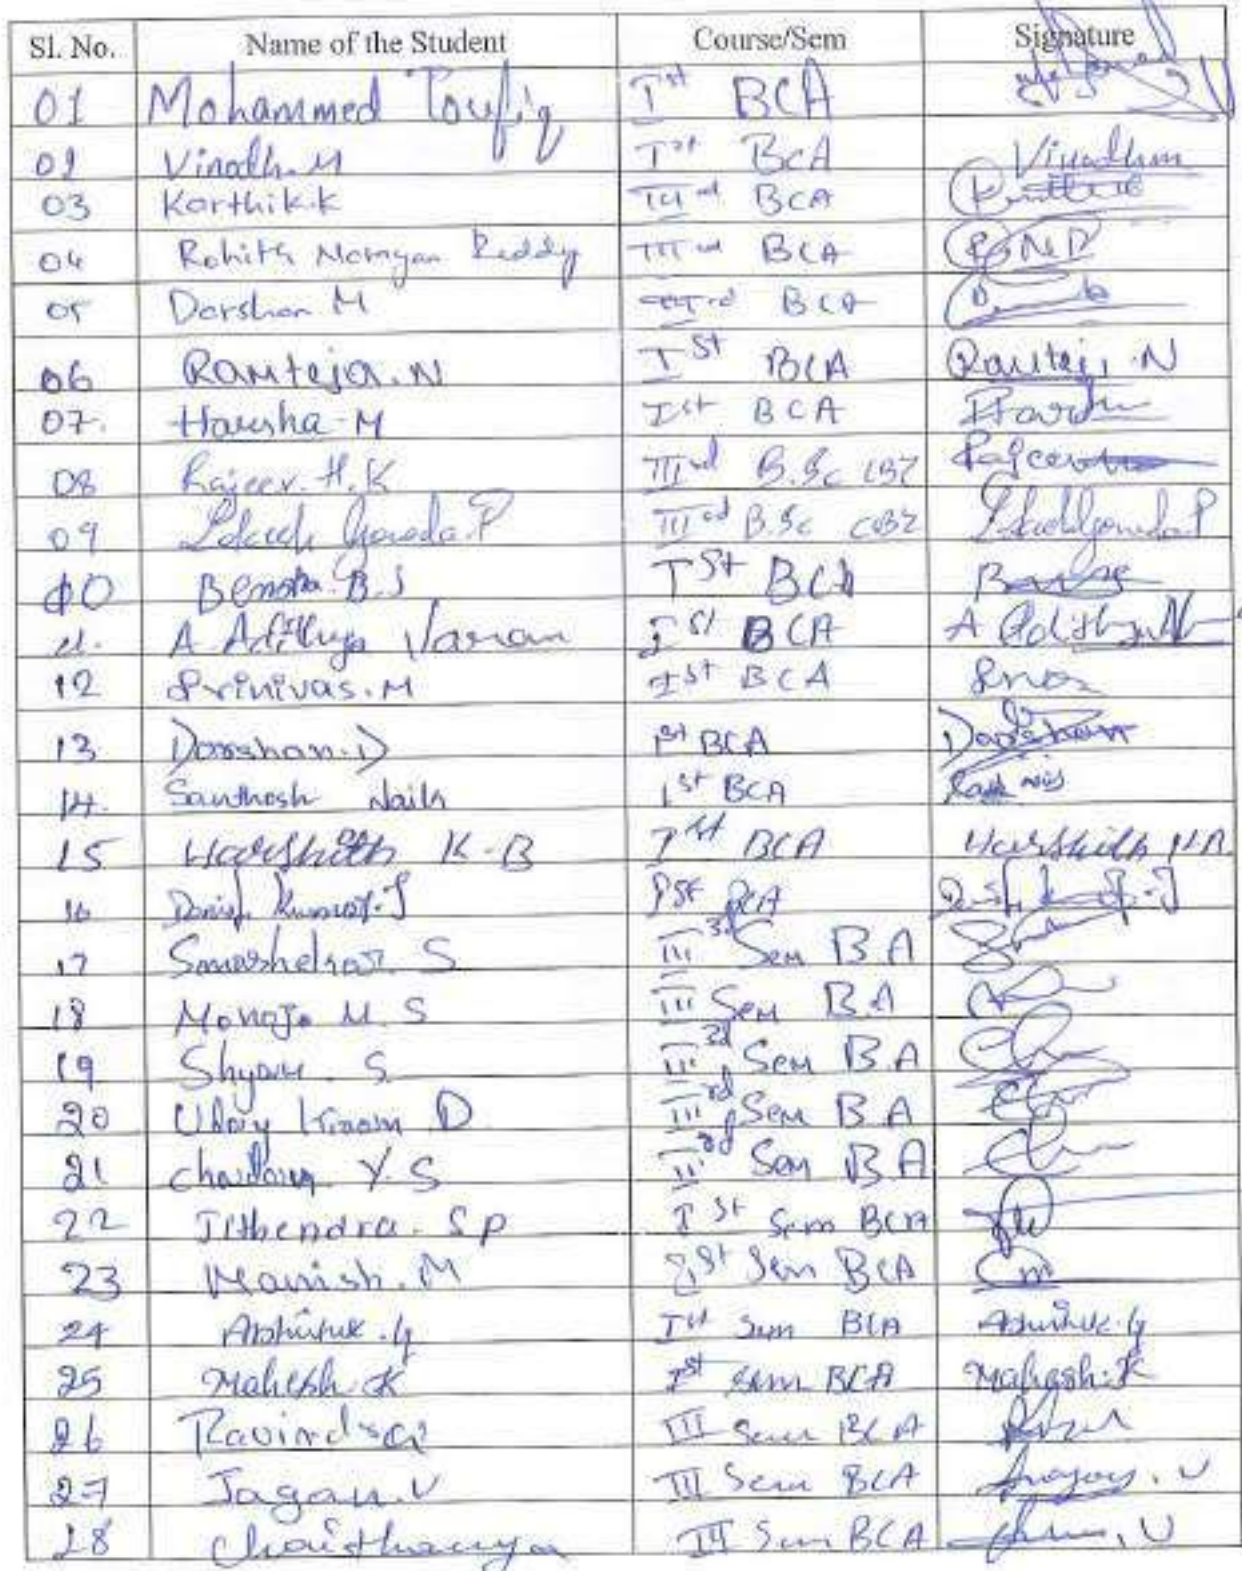 Sl. No. Name of the Student Course/Sem Signature
01 Mohammed Toufiq Ist BCA
02 Vinodh.M Ist BCA Vinodhm
03 Karthik.k IIIrd BCA
04 Rohith Narayan Reddy IIIrd BCA
05 Darshan M IIIrd BCA
06 Raviteja.N Ist BCA Raviteja.N
07. Harsha-M Ist BCA
08 Rajeev.H.K IIIrd B.Sc CBZ
09 Lokesh Gowda.P IIIrd B.Sc CBZ
10 B.S Ist BCA
11. A Adithya Ist BCA A Adithya
12 Srinivas.M Ist BCA
13 Darshan.D 1st BCA Darshan
14. Santhosh Naik 1st BCA
15 Harshith K-B Ist BCA Harshith K B
16 Kumar.J Ist BCA
17 S III 3rd Sem B.A
18 Manoj M.S III Sem B.A
19 Shyam.S III 3rd Sem B.A
20 Uday Kiran D III rd Sem B.A
21 Y.S III 3rd Sem B.A
22 Jithendra.S P Ist Sem BCA
23 Manish.M Ist Sem BCA
24 Ist Sem BCA
25 Mahesh.K Ist Sem BCA Mahesh.K
26 Ravindra III Sem BCA
27 Jagan.V III Sem BCA
28 Chaithanya III Sem BCA